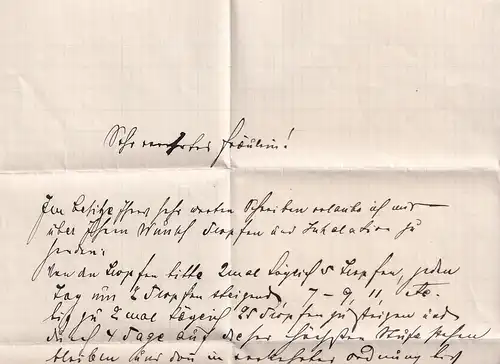 Sehr verehrtes Fräulein!
Im Besitze Ihres sehr werten Schreiben erlaube ich mir
über Ihren Wunsch Tropfen und Inhalation zu
senden.
Von den Tropfen bitte 2 mal täglich 5 Tropfen, jeden
Tag um 2 Tropfen steigend 7 – 9, 11, etc.
bis zu 2 mal täglich 25 Tropfen zu steigen und
durch 4 Tage auf dieser höchsten Stufe stehen
bleiben und dann in verkehrter Ordnung bis